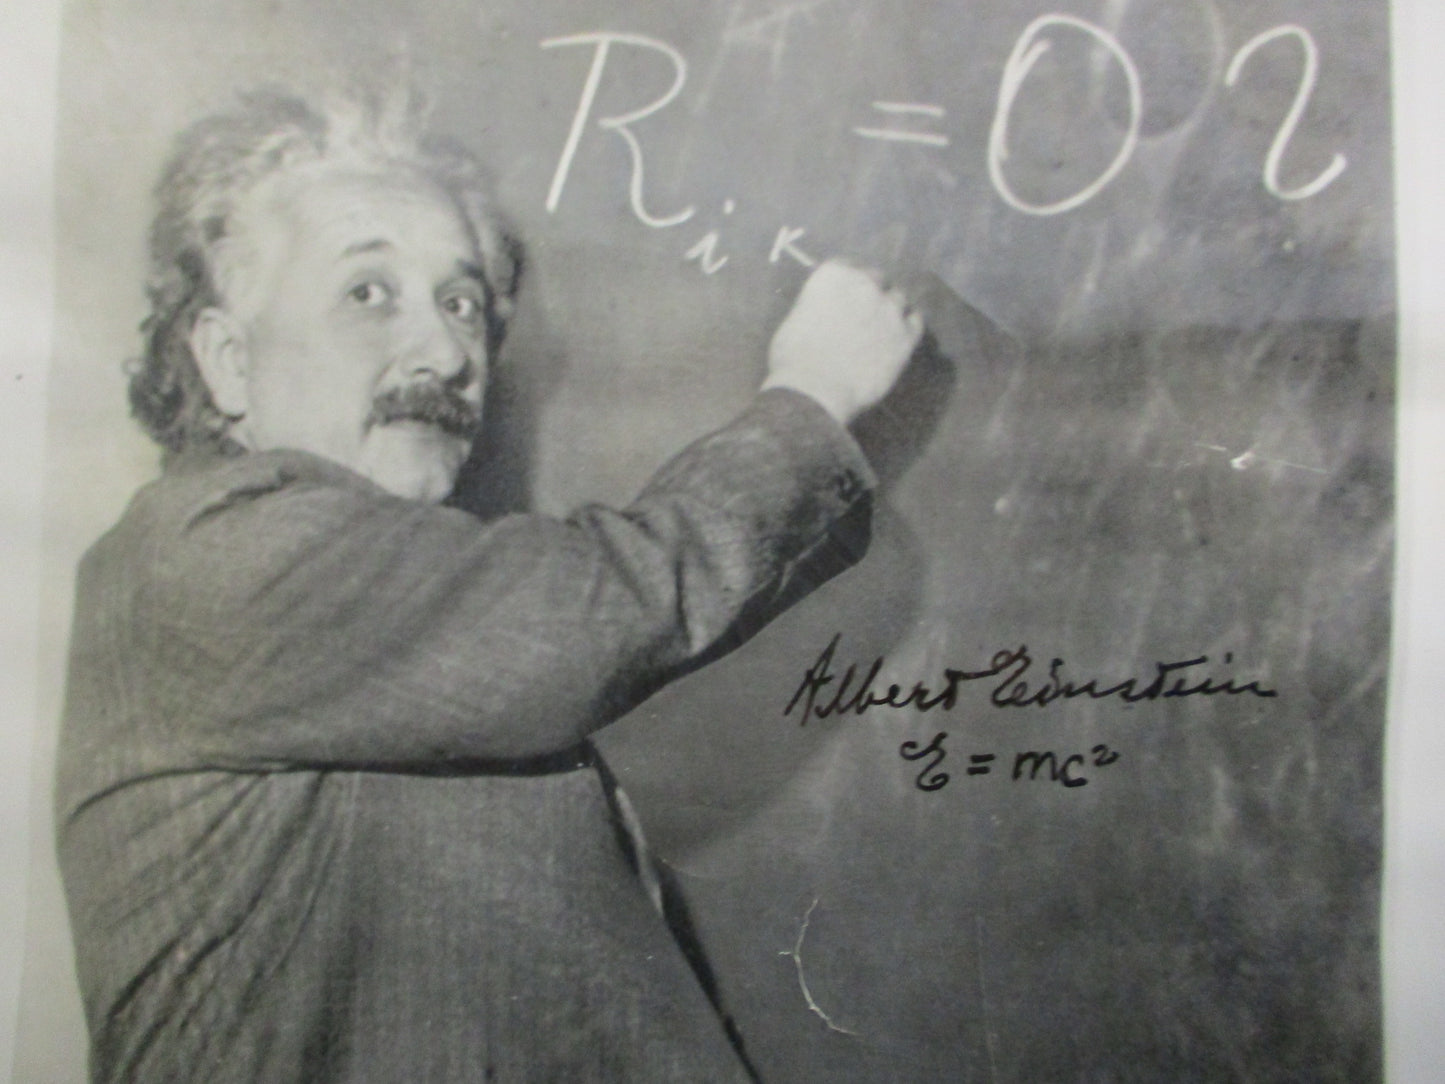 R_{ik} = 0 ?
Albert Einstein
E = mc²